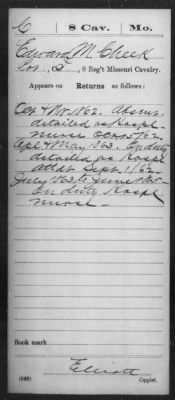 C 8 Cav. Mo.
Edward M. Cheek
Co. C, 8 Reg't Missouri Cavalry.
Appears on Returns as follows:
Oct & Nov 1862. Absent
detailed as Hospl
nurse Oct 15/62.
Apl & May 1863. On duty
detailed as Hospl
attdt Sept 1/62.
July 1863 to June
On duty Hospl
nurse.
Book mark
Elliott
(646) Copyist.